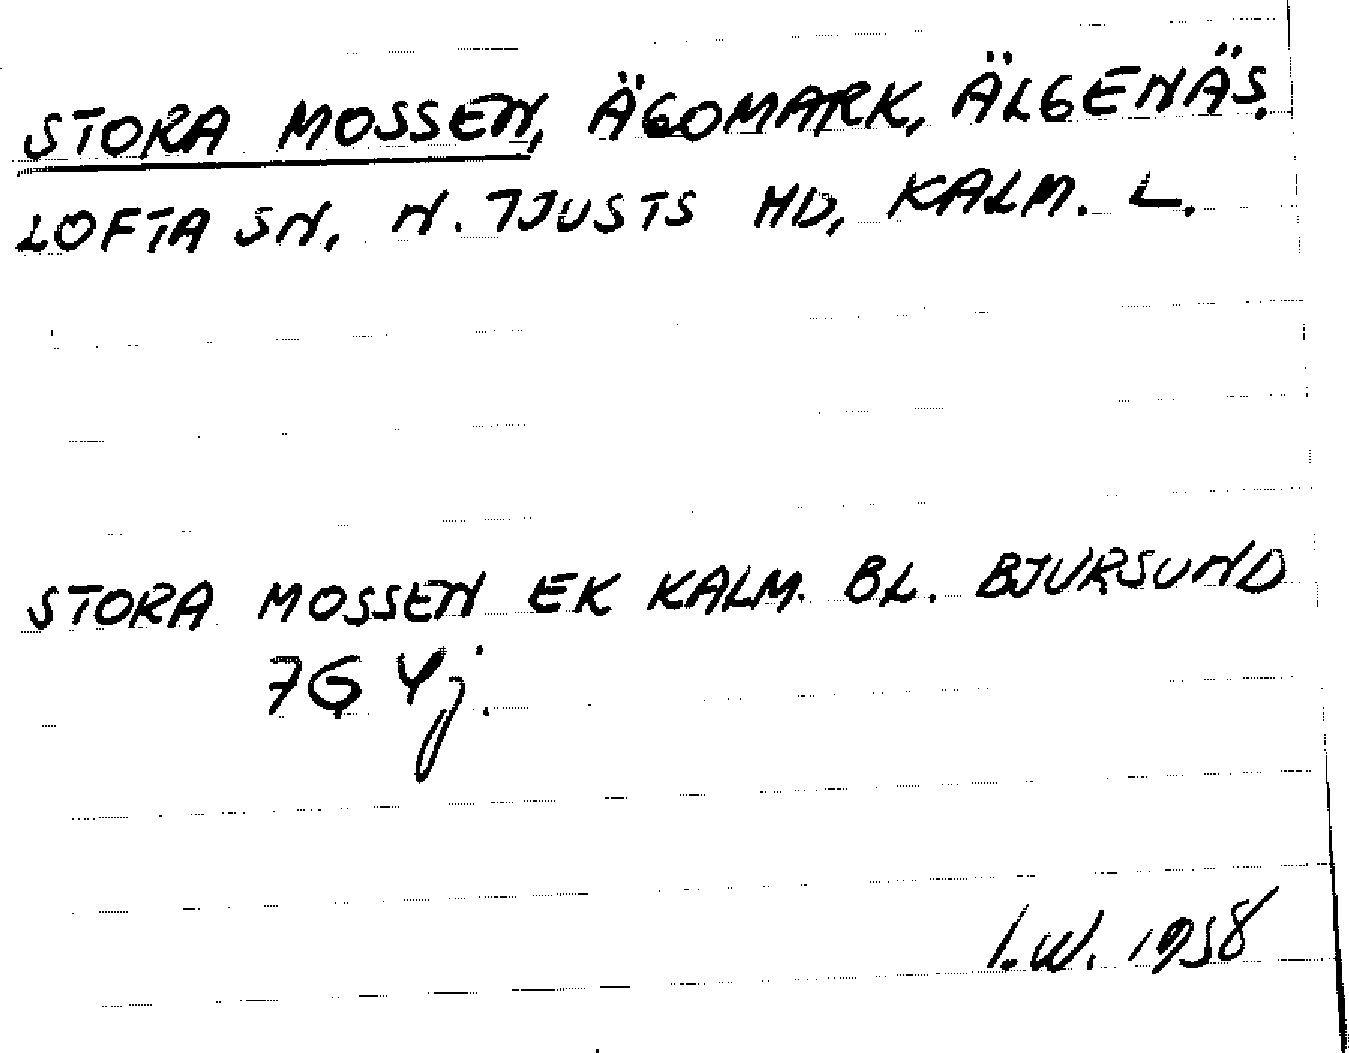 STORA MOSSEN, ÄGOMARK, ÄLGENÄS.
LOFTA SN, N. TJUSTS HD, KALM. L.
STORA MOSSEN EK KALM. BL. BJURSUND
7G 4j.
I.W. 1958